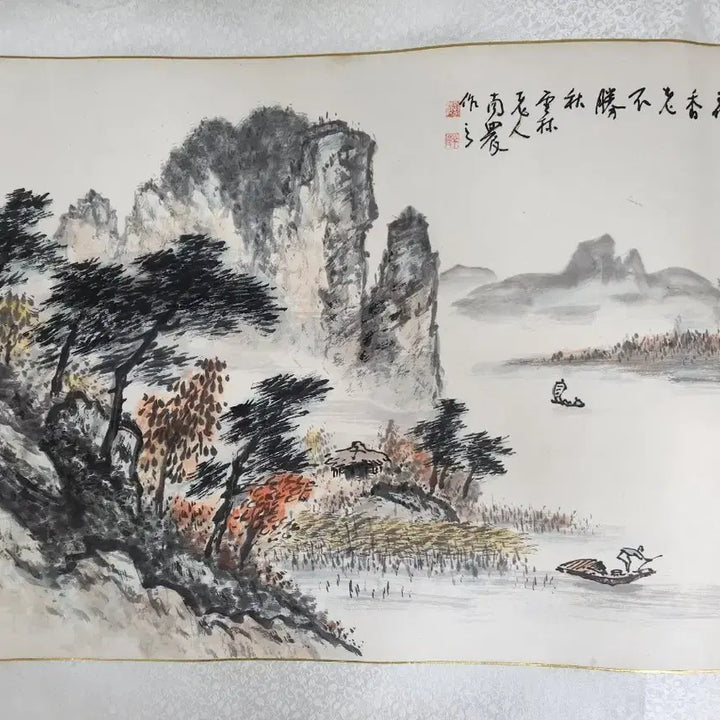 香
老
不
勝
秋
雲林
老人
南農
作之